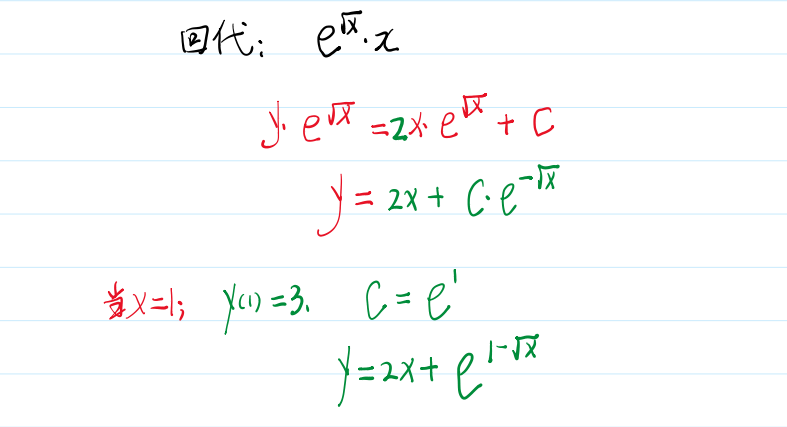 回代： e^√x·x
y·e^√x =2x·e^√x + C
y = 2x + C·e^-√x
当x=1; y(1)=3. C = e^1
y=2x+ e^1-√x